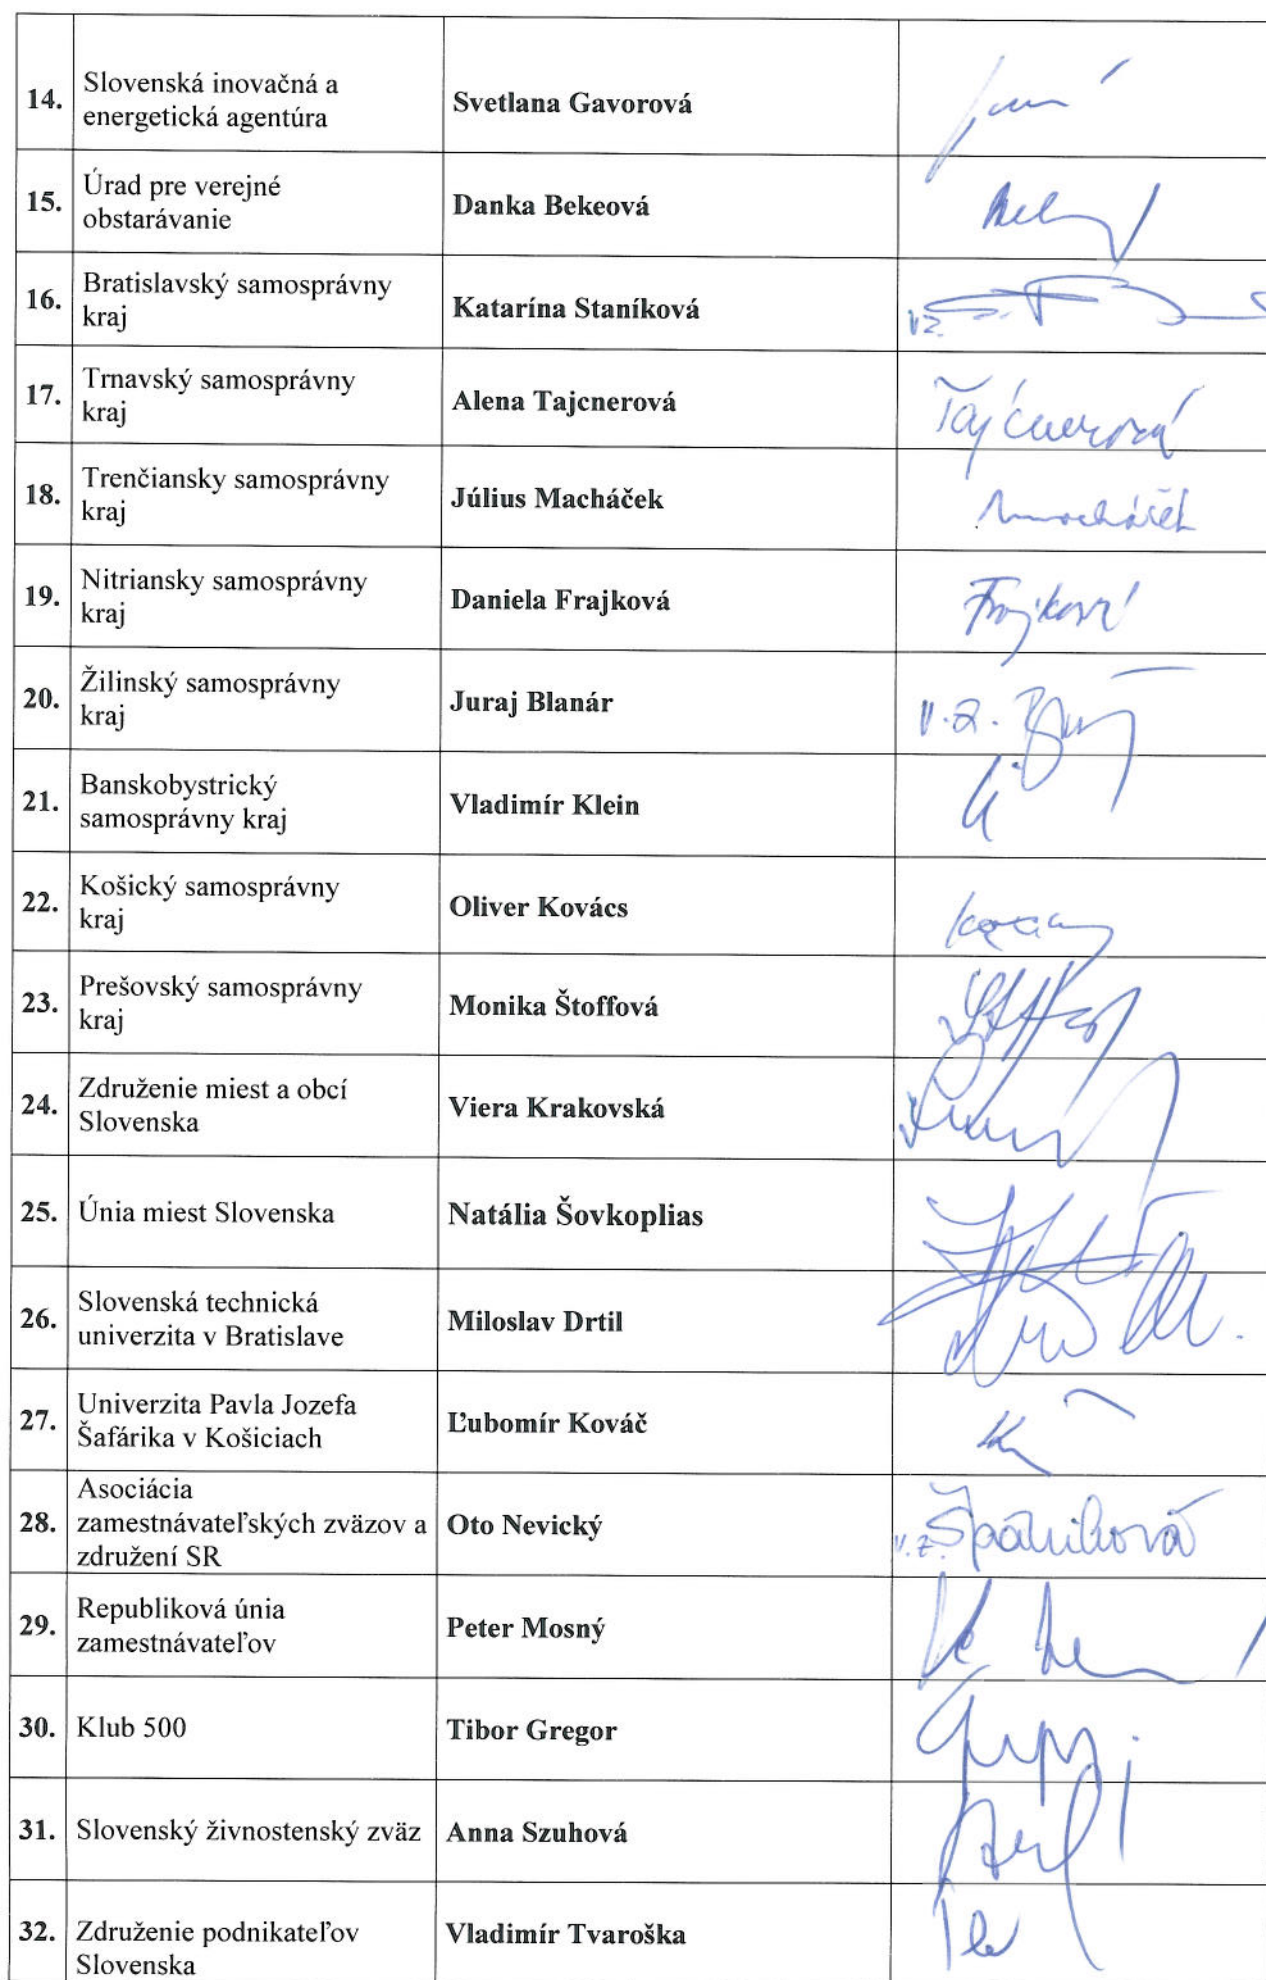 14. Slovenská inovačná a
energetická agentúra
Svetlana Gavorová
15. Úrad pre verejné
obstarávanie
Danka Bekeová
16. Bratislavský samosprávny
kraj
Katarína Staníková
vz.
17. Trnavský samosprávny
kraj
Alena Tajcnerová
Tajcnerová
18. Trenčiansky samosprávny
kraj
Július Macháček
Macháček
19. Nitriansky samosprávny
kraj
Daniela Frajková
Frajková
20. Žilinský samosprávny
kraj
Juraj Blanár
v.z.
21. Banskobystrický
samosprávny kraj
Vladimír Klein
22. Košický samosprávny
kraj
Oliver Kovács
23. Prešovský samosprávny
kraj
Monika Štoffová
24. Združenie miest a obcí
Slovenska
Viera Krakovská
25. Únia miest Slovenska
Natália Šovkoplias
26. Slovenská technická
univerzita v Bratislave
Miloslav Drtil
27. Univerzita Pavla Jozefa
Šafárika v Košiciach
Ľubomír Kováč
28. Asociácia
zamestnávateľských zväzov a
združení SR
Oto Nevický
v.z. Špániková
29. Republiková únia
zamestnávateľov
Peter Mosný
30. Klub 500
Tibor Gregor
31. Slovenský živnostenský zväz
Anna Szuhová
32. Združenie podnikateľov
Slovenska
Vladimír Tvaroška